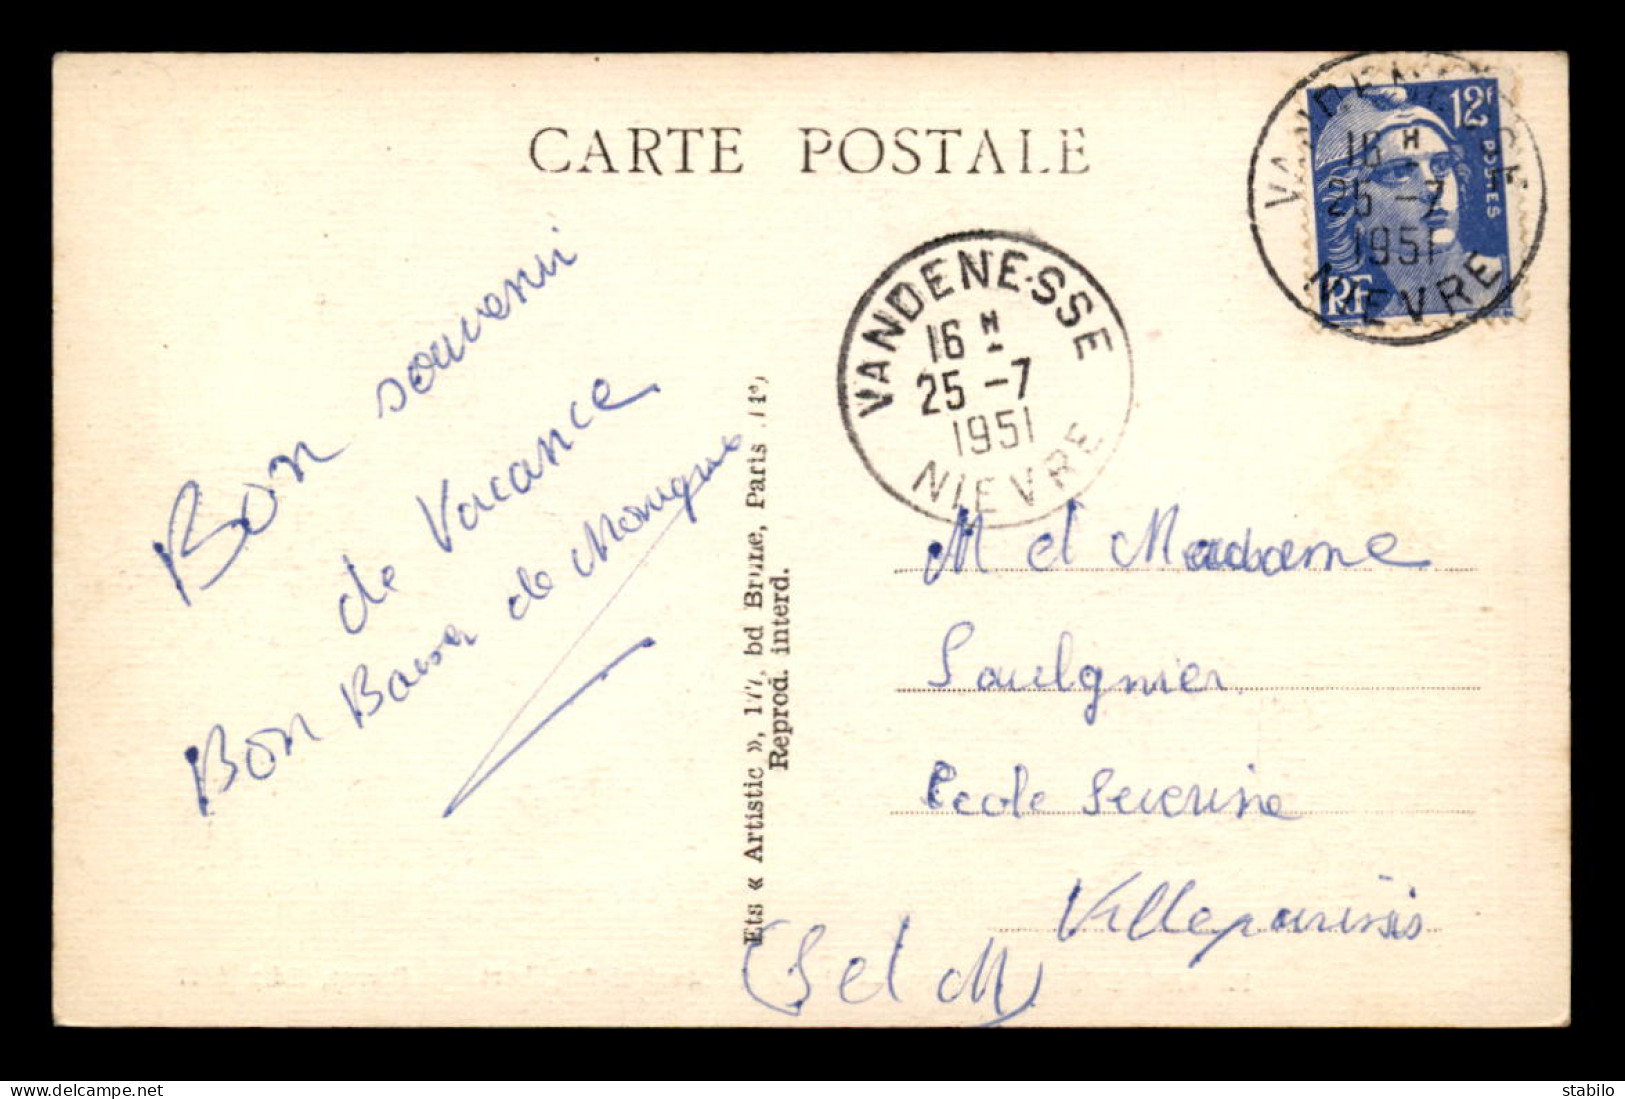 CARTE POSTALE
12F
POSTES
RF
VANDENESSE
16 H
25 - 7
1951
NIEVRE
VANDENESSE
16 H
25 - 7
1951
NIEVRE
Bon souvenir
de Vacance
Bon Baiser de Monique
Ets « Artistic », bd Brune, Paris
Reprod. interd.
M et Madame
Saulgnier
Ecole Severine
Villeparisis
(S et M)